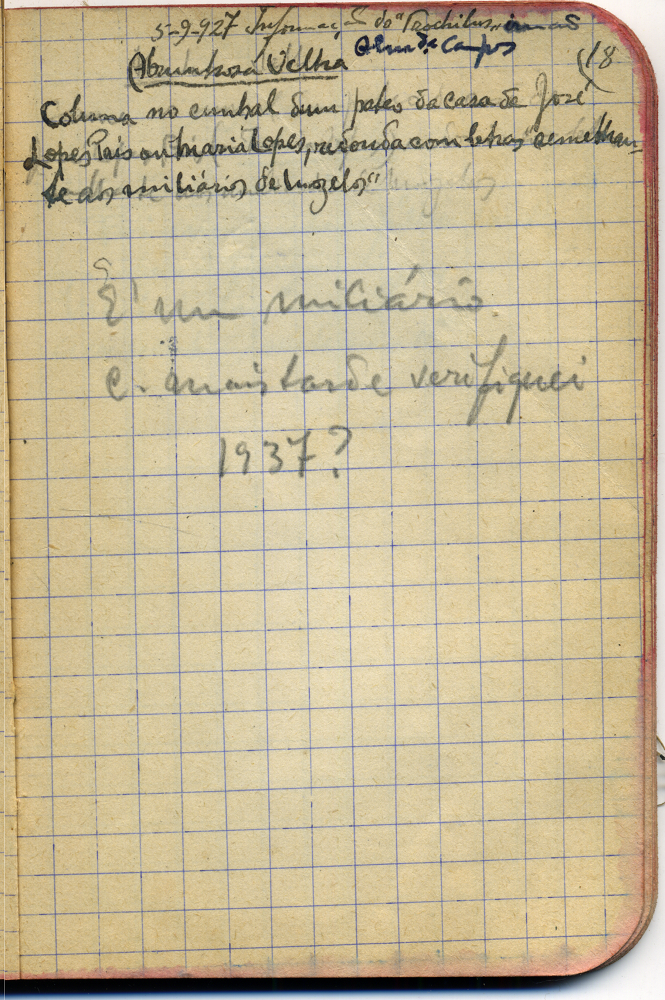 5-9-927 Informação do "Trochilus" irmão
Alm.da Campos
Abrunhosa Velha
18
Coluna no cunhal dum pateo da casa de José
Lopes Pais ou Maria Lopes, redonda com letras "semelhan-
te aos miliários de Mogelos"
É um miliário
e. mais tarde verifiquei
1937?